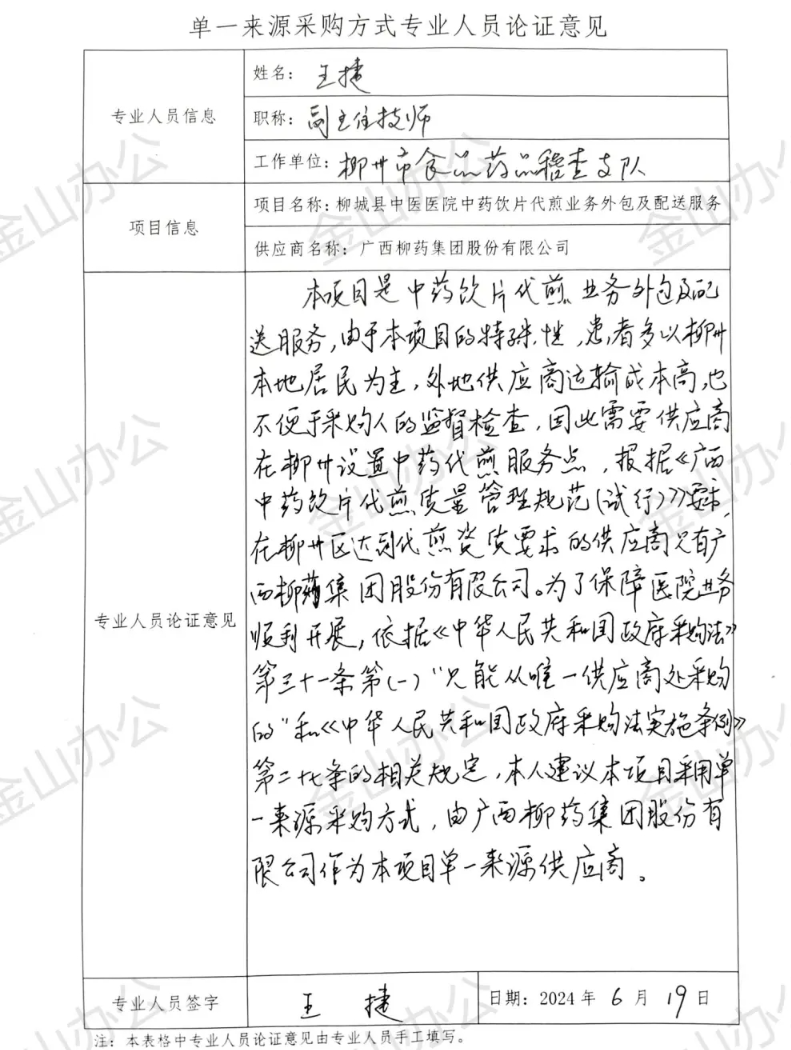 单一来源采购方式专业人员论证意见
专业人员信息
姓名：王捷
职称：副主任技师
工作单位：柳州市食品药品稽查支队
项目信息
项目名称：柳城县中医医院中药饮片代煎业务外包及配送服务
供应商名称：广西柳药集团股份有限公司
专业人员论证意见
本项目是中药饮片代煎业务外包及配
送服务，由于本项目的特殊性，患者多以柳州
本地居民为主，外地供应商运输成本高，也
不便于采购人的监督检查，因此需要供应商
在柳州设置中药代煎服务点，报据《广西
中药饮片代煎质量管理规范（试行）》要求，
在柳州区达到代煎资质要求的供应商只有广
西柳药集团股份有限公司。为了保障医院业务
顺利开展，依据《中华人民共和国政府采购法》
第三十一条第（一）“只能从唯一供应商处采购
的”和《中华人民共和国政府采购法实施条例》
第二十七条的相关规定，本人建议本项目采用单
一来源采购方式，由广西柳药集团股份有
限公司作为本项目单一来源供应商。
专业人员签字
王捷
日期：2024年6月19日
注：本表格中专业人员论证意见由专业人员手工填写。
金山办公
金山办公
金山办公
金山办公
金山办公
金山办公
金山办公
金山办公
金山办公